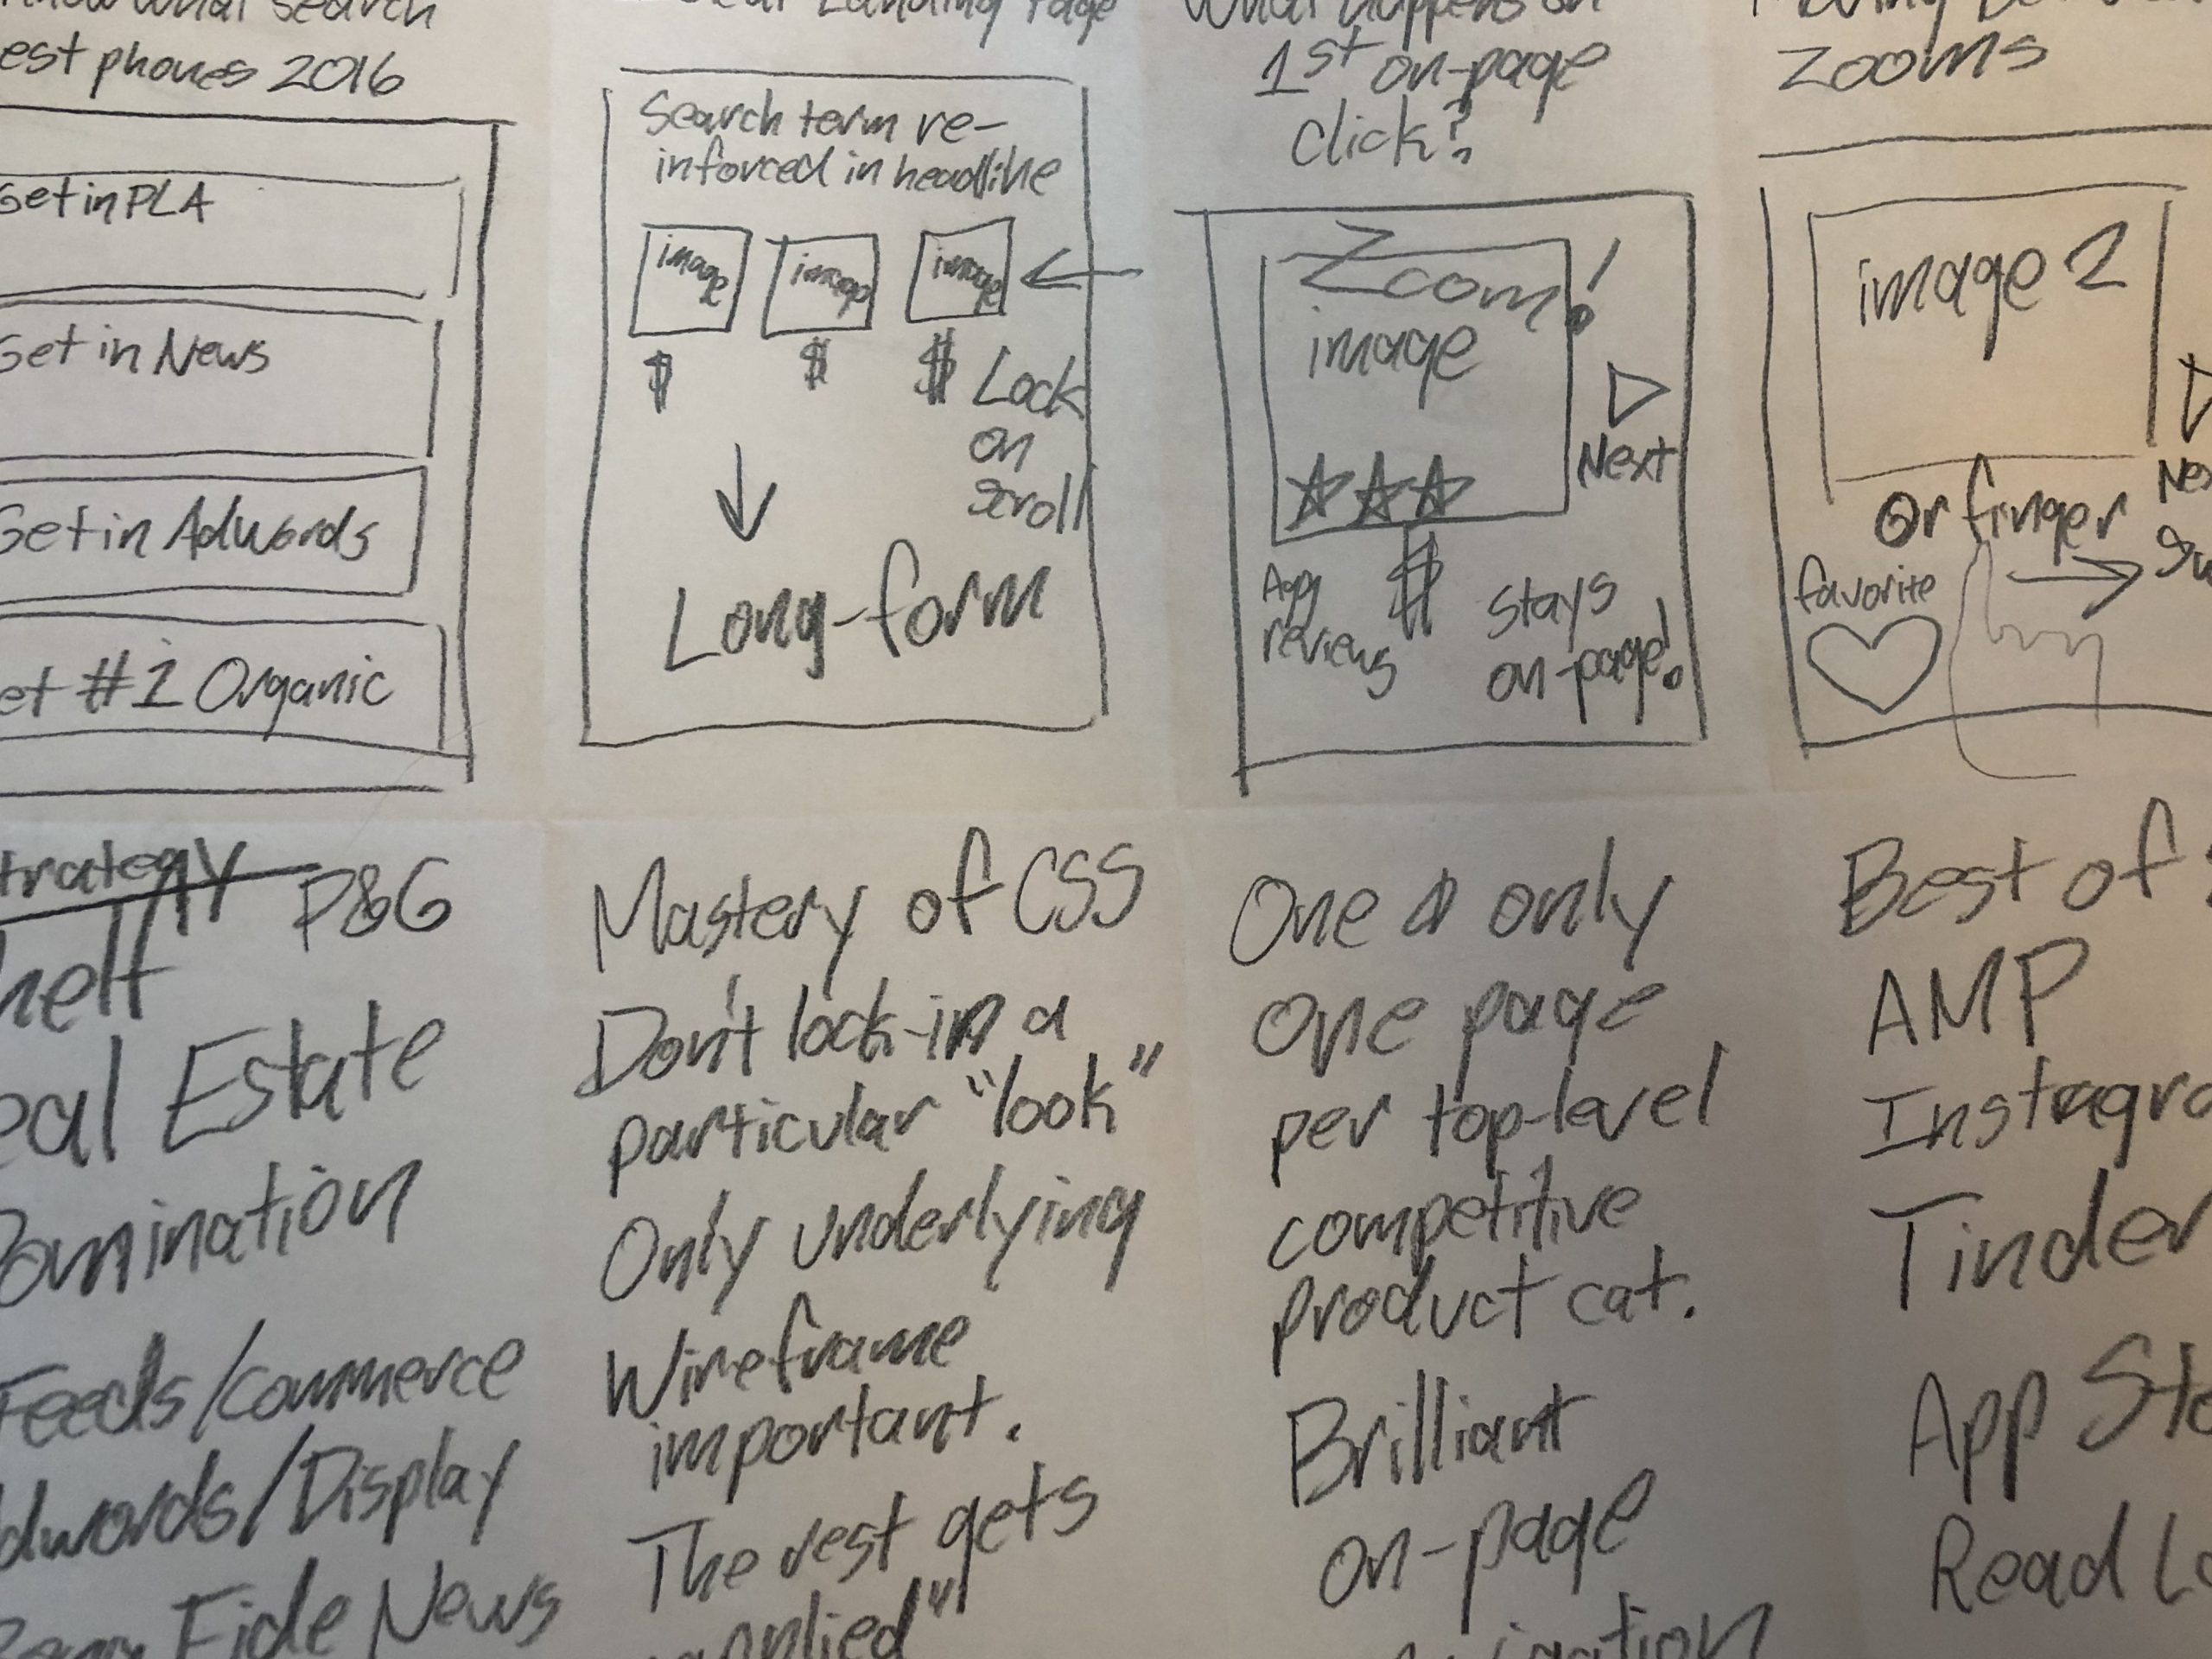 what search
est phones 2016
Get in PLA
Get in News
Get in Adwords
et #1 Organic
Landing Page
Search term re-
inforced in headline
image image image
$ $ $
Lock
on
scroll
Long-form
What happens on
1st on-page
click?
Zoom!
image
Next
Agg
reviews
$
stays
on-page!
Moving
Zooms
image 2
Or finger
favorite
trategy P&G
helf
eal Estate
Domination
Feeds/commerce
dwords/Display
Fide News
Mastery of CSS
Don't lock-in a
particular "look"
Only underlying
Wireframe
important.
The rest gets
applied"
One & only
One page
per top-level
competitive
product cat.
Brilliant
on-page
Best of
AMP
Instagra
Tinder
App Sto
Read L